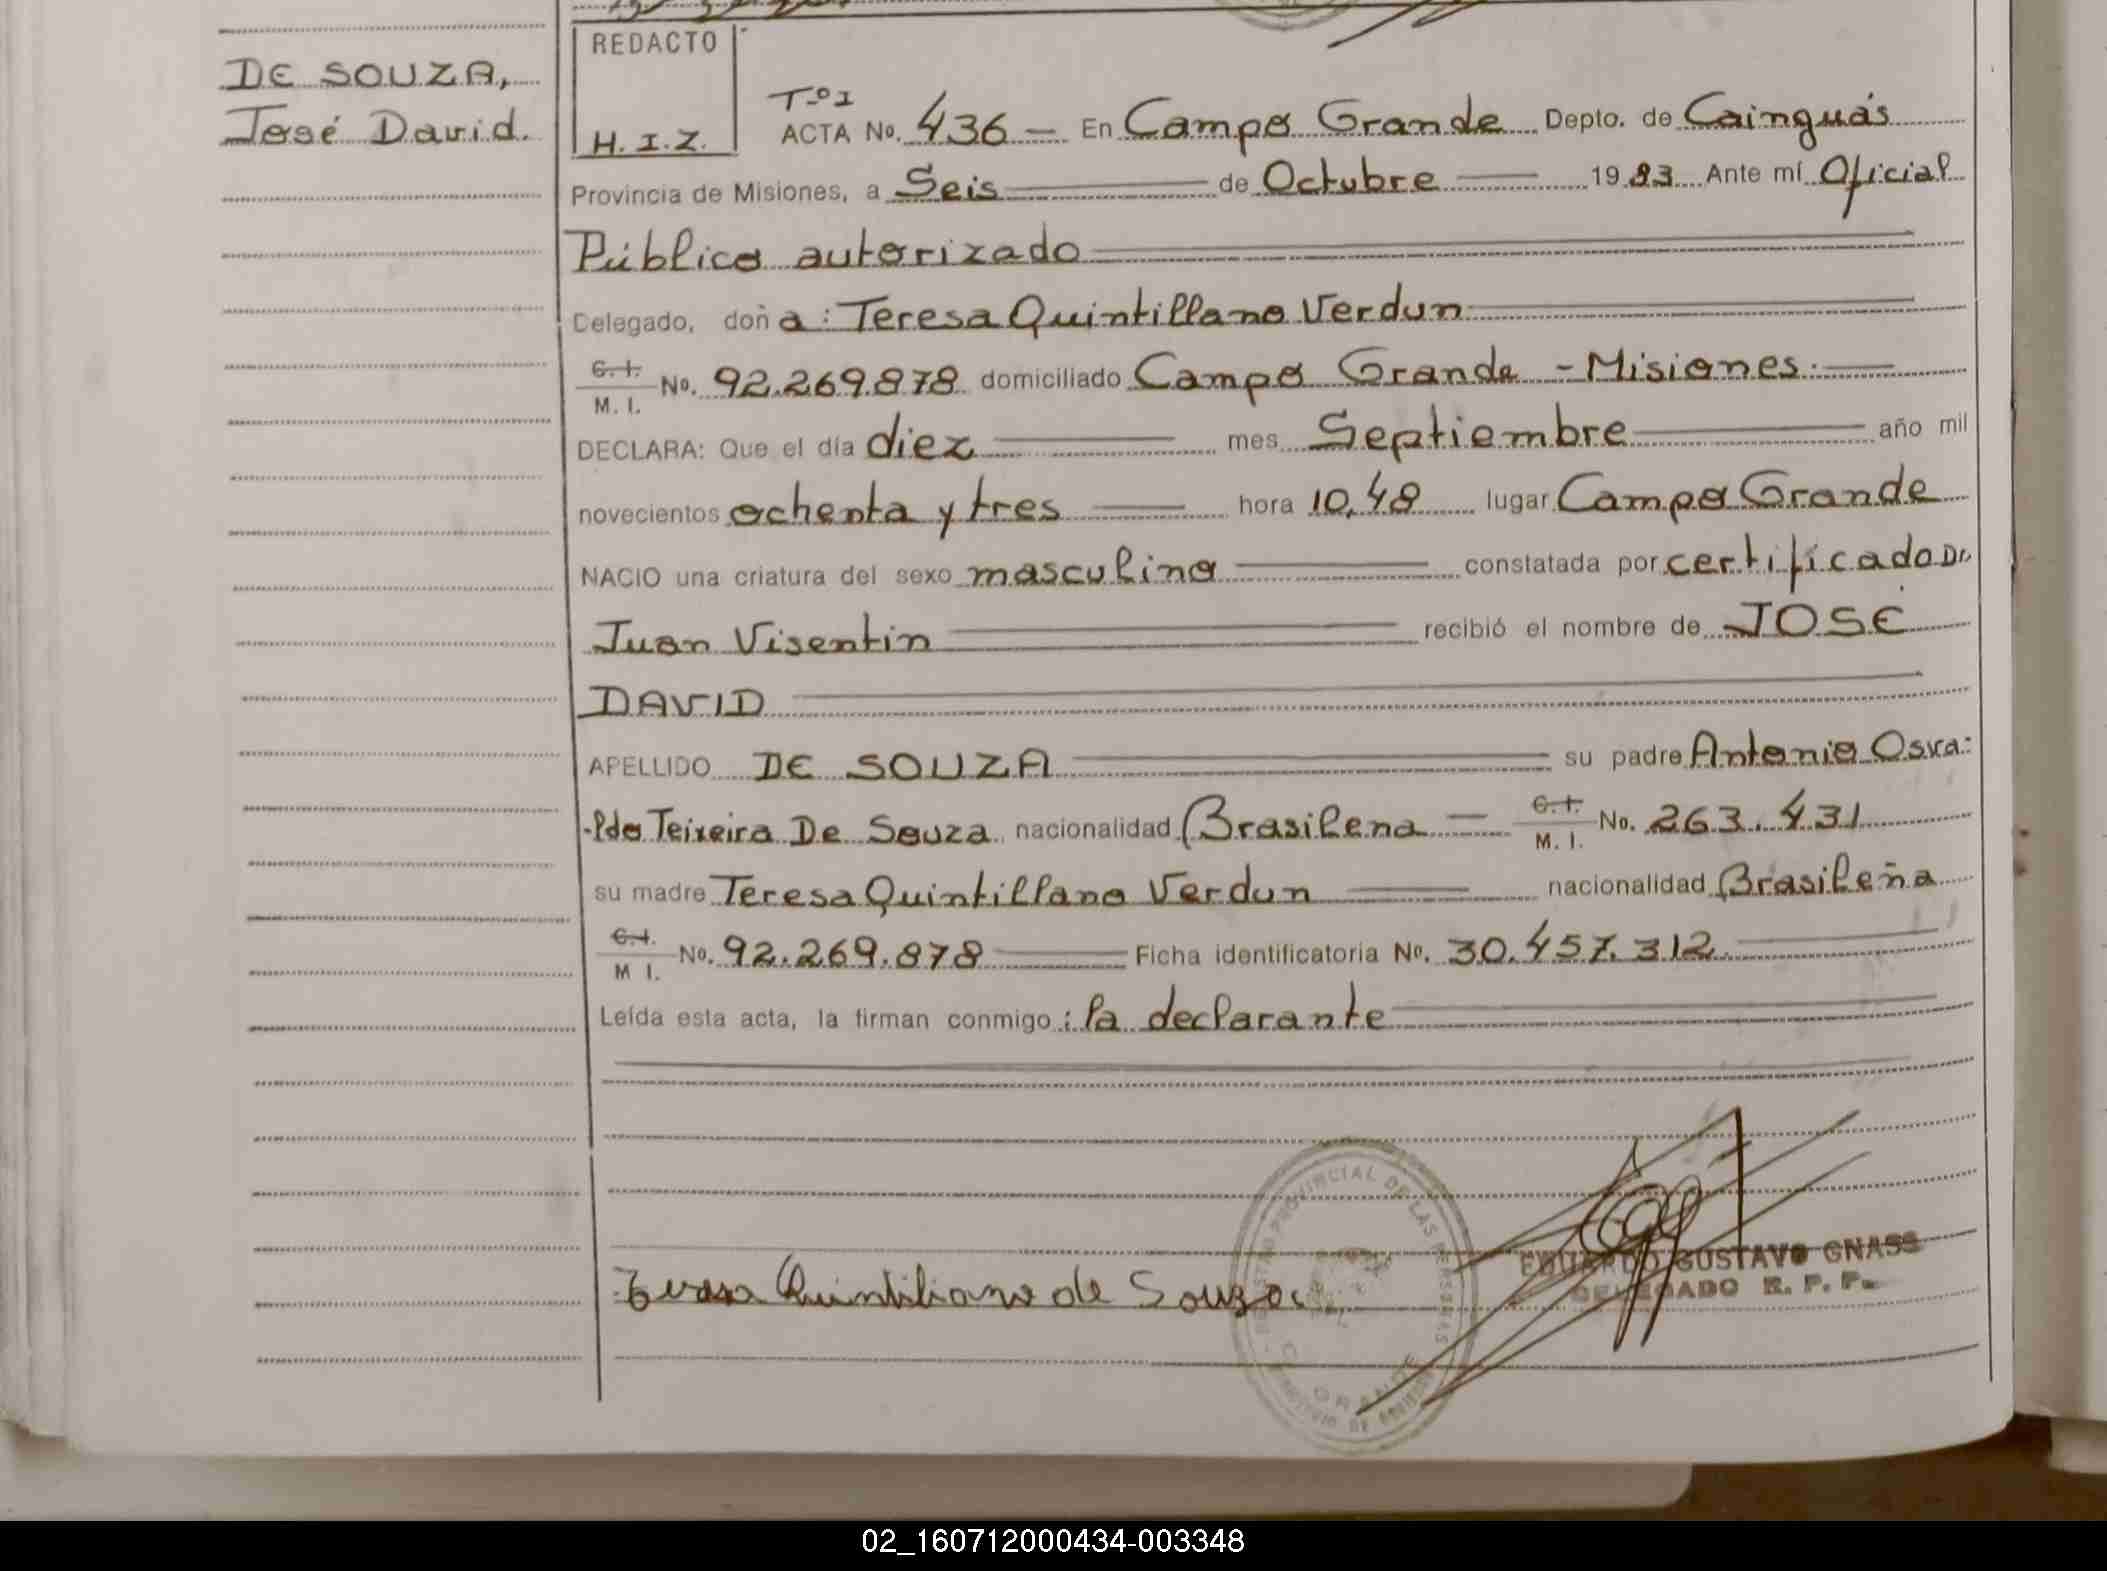 DE SOUZA,
José David.
REDACTO
H. I. Z.
Tº I
ACTA No. 436 — En Campo Grande Depto. de Cainguás
Provincia de Misiones, a Seis de Octubre 1983 Ante mí Oficial
Público autorizado
Delegado, doña: Teresa Quintillano Verdun
C. I. M. I. No. 92.269.878 domiciliado Campo Grande - Misiones.
DECLARA: Que el día diez mes Septiembre año mil
novecientos ochenta y tres hora 10,48 lugar Campo Grande
NACIO una criatura del sexo masculino constatada por certificado Dr.
Juan Visentin recibió el nombre de JOSÉ
DAVID
APELLIDO DE SOUZA su padre Antonio Osva-
-ldo Teixeira De Souza nacionalidad Brasilena — C. I. M. I. No. 263.431
su madre Teresa Quintillano Verdun nacionalidad Brasileña
C. I. M I. No. 92.269.878 Ficha identificatoria No. 30.457.312.
Leída esta acta, la firman conmigo: la declarante
REGISTRO PROVINCIAL DE LAS PERSONAS
GRANDE
Teresa Quintiliano de Souza
EDUARDO GUSTAVO GNASS
DELEGADO R. P. P.
02_160712000434-003348